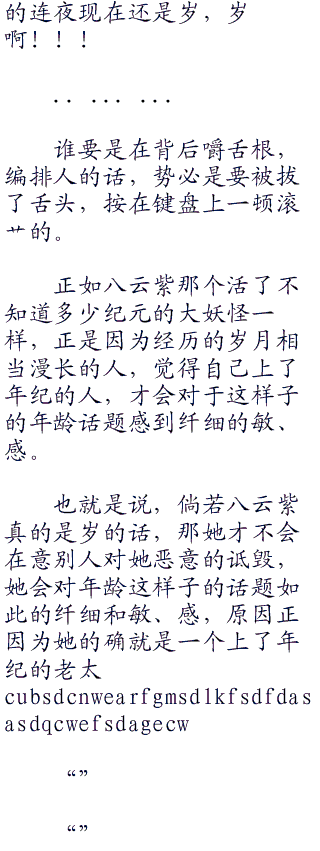 的连夜现在还是岁，岁
啊！！！
.. ... ...
谁要是在背后嚼舌根，
编排人的话，势必是要被拔
了舌头，按在键盘上一顿滚
艹的。
正如八云紫那个活了不
知道多少纪元的大妖怪一
样，正是因为经历的岁月相
当漫长的人，觉得自己上了
年纪的人，才会对于这样子
的年龄话题感到纤细的敏、
感。
也就是说，倘若八云紫
真的是岁的话，那她才不会
在意别人对她恶意的诋毁，
她会对年龄这样子的话题如
此的纤细和敏、感，原因正
因为她的确就是一个上了年
纪的老太
cubsdcnwearfgmsdlkfsdfdas
asdqcwefsdagecw
“”
“”